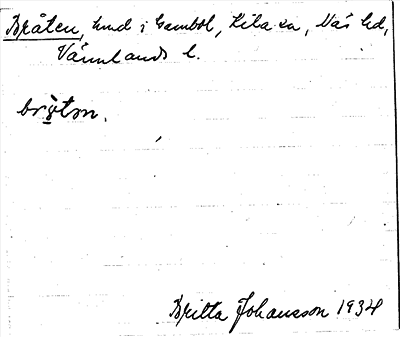 Bråten, hmd i Gambol, Kila sn, Näs hd,
Värmlands l.
brǫ̀tm.
Britta Johansson 1934